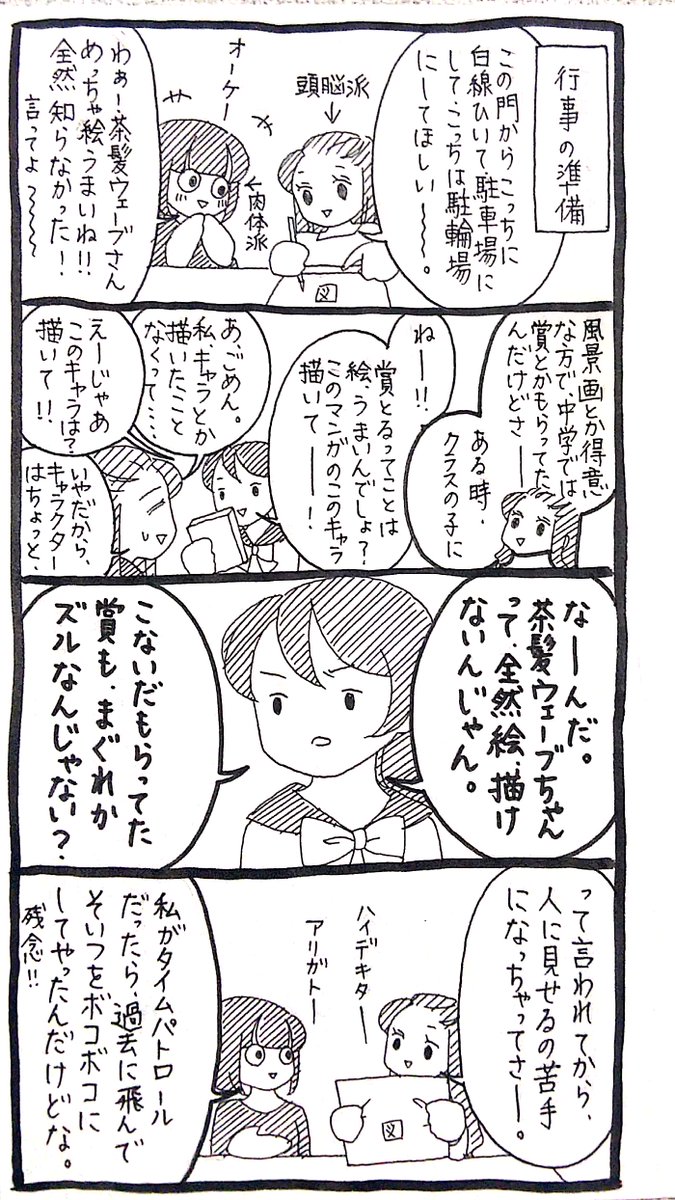 行事の準備
この門からこっちに
白線ひいて、駐車場に
して、こっちは駐輪場
にしてほしい〜〜〜。
頭脳派
オーケー
肉体派
わぁ!茶髪ウェーブさん
めっちゃ絵、うまいね!!
全然知らなかった!
言ってよ〜〜〜
図
風景画とか得意
な方で、中学では
賞とかもらってた
んだけどさ──
ある時、
クラスの子に
ねー!!
賞とるってことは
絵、うまいんでしょ?
このマンガのこのキャラ
描いてー!
あ、ごめん。
私、キャラとか
描いたこと
なくって・・・・
えーじゃあ
このキャラは?
描いて!!
いやだから、
キャラクター
はちょっと、
なーんだ。
茶髪ウェーブちゃん
って、全然絵、描け
ないんじゃん。
こないだもらってた
賞も、まぐれか
ズルなんじゃない?
って言われてから、
人に見せるの苦手
になっちゃってさー。
ハイデキター
アリガトー
図
私がタイムパトロール
だったら、過去に飛んで
そいつをボコボコに
してやったんだけどな。
残念!!